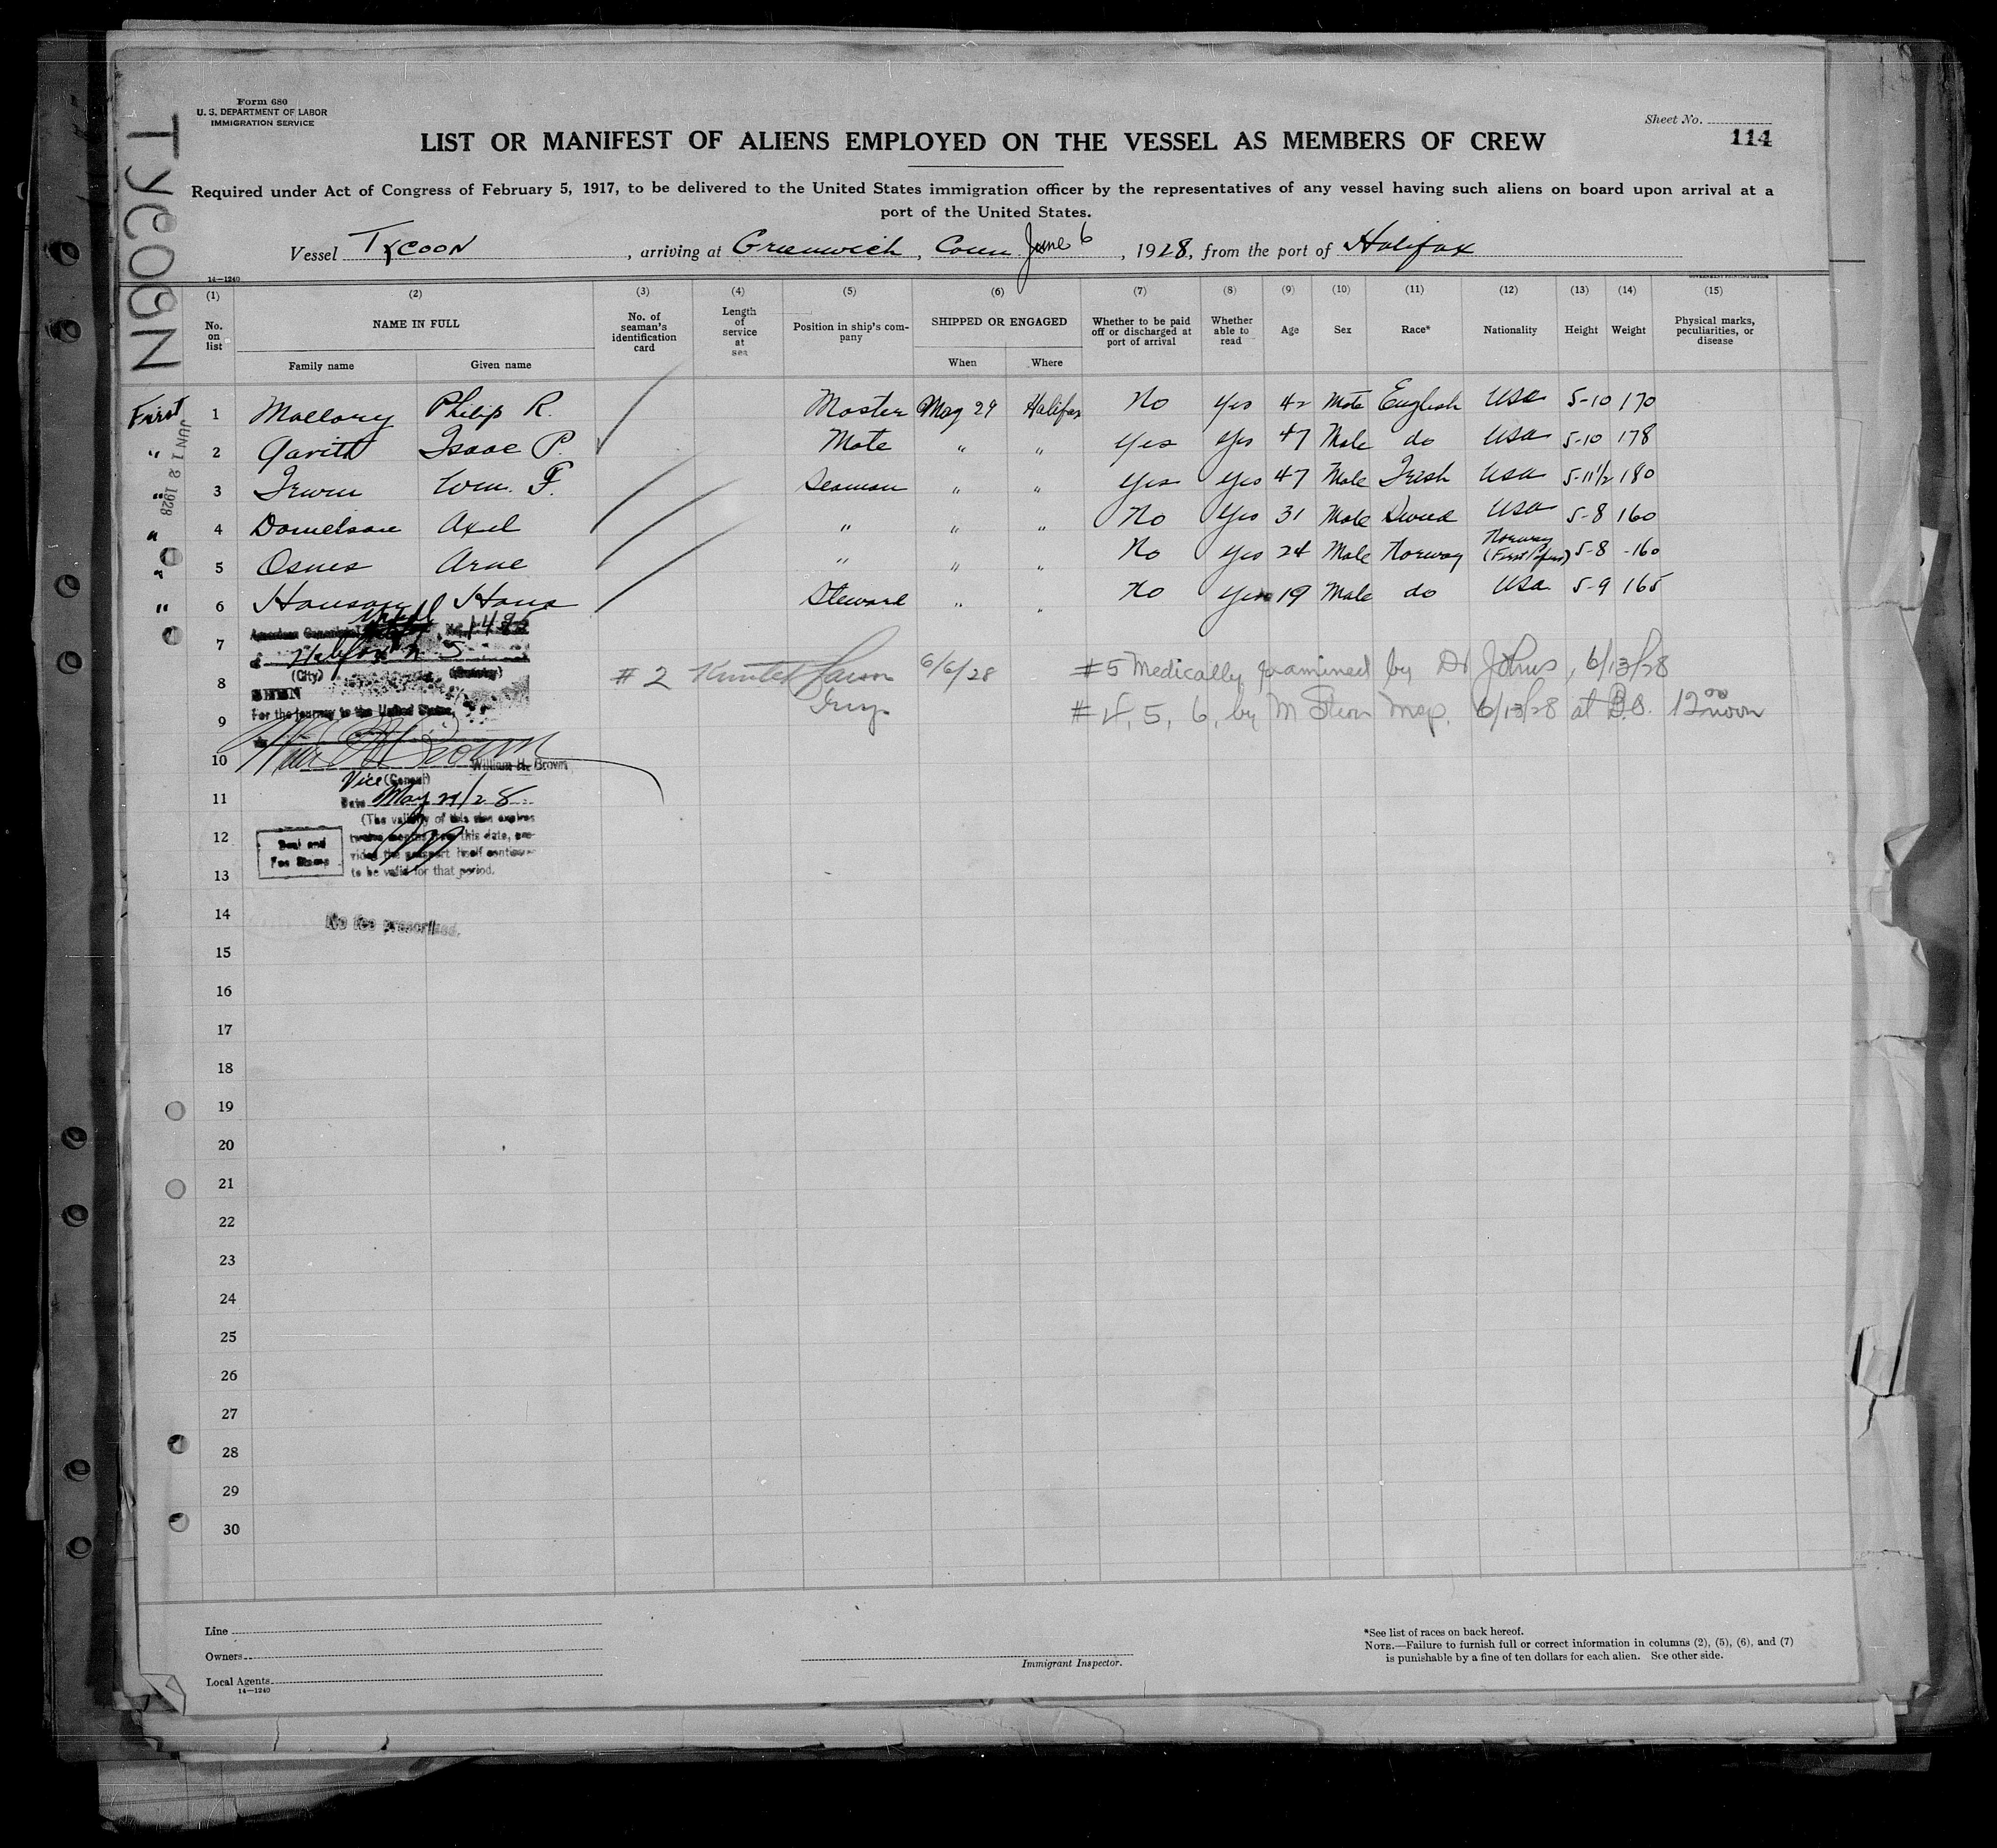 TYCOON
Form 680
U. S. DEPARTMENT OF LABOR
IMMIGRATION SERVICE
Sheet No.
114
LIST OR MANIFEST OF ALIENS EMPLOYED ON THE VESSEL AS MEMBERS OF CREW
Required under Act of Congress of February 5, 1917, to be delivered to the United States immigration officer by the representatives of any vessel having such aliens on board upon arrival at a
port of the United States.
Vessel Tycoon, arriving at Greenwich, Conn. June 6, 1928, from the port of Halifax
14—1240 GOVERNMENT PRINTING OFFICE
(1) (2) (3) (4) (5) (6) (7) (8) (9) (10) (11) (12) (13) (14) (15)
No. on list NAME IN FULL No. of seaman's identification card Length of service at sea Position in ship's company SHIPPED OR ENGAGED Whether to be paid off or discharged at port of arrival Whether able to read Age Sex Race* Nationality Height Weight Physical marks, peculiarities, or disease
Family name Given name When Where
First 1 Mallory Philip R. Master May 29 Halifax No Yes 42 Male English USA 5-10 170
" 2 Isaac P. Mate " " Yes Yes 47 Male do USA 5-10 178
" 3 Irwin Wm. F. Seaman " " Yes Yes 47 Male Irish USA 5-11½ 180
" 4 Danielson Axel " " " No Yes 31 Male Swede USA 5-8 160
" 5 Osnes Arne " " " No Yes 24 Male Norway Norway (First Papers) 5-8 160
" 6 Hanson Hans Steward " " No Yes 19 Male do USA 5-9 165
JUN 12 1928
7
American Consulate
Halifax N S
(City) (Country)
8
SEEN
For the journey to the United States
#2 6/6/28
#5 Medically examined by Dr Johns, 6/13/28
#4, 5, 6, by M Insp. 6/13/28 at 12 noon
9
10
William H. Brown
Vice (Consul)
11
Date May 29/28
(The validity of this visa expires
12
twelve months from this date, pro-
vided the passport itself continues
to be valid for that period.
Seal and
Fee Stamp
13
14
No fee prescribed.
15
16
17
18
19
20
21
22
23
24
25
26
27
28
29
30
Line
Owners
Local Agents
14—1240
Immigrant Inspector.
*See list of races on back hereof.
NOTE.—Failure to furnish full or correct information in columns (2), (5), (6), and (7)
is punishable by a fine of ten dollars for each alien. See other side.